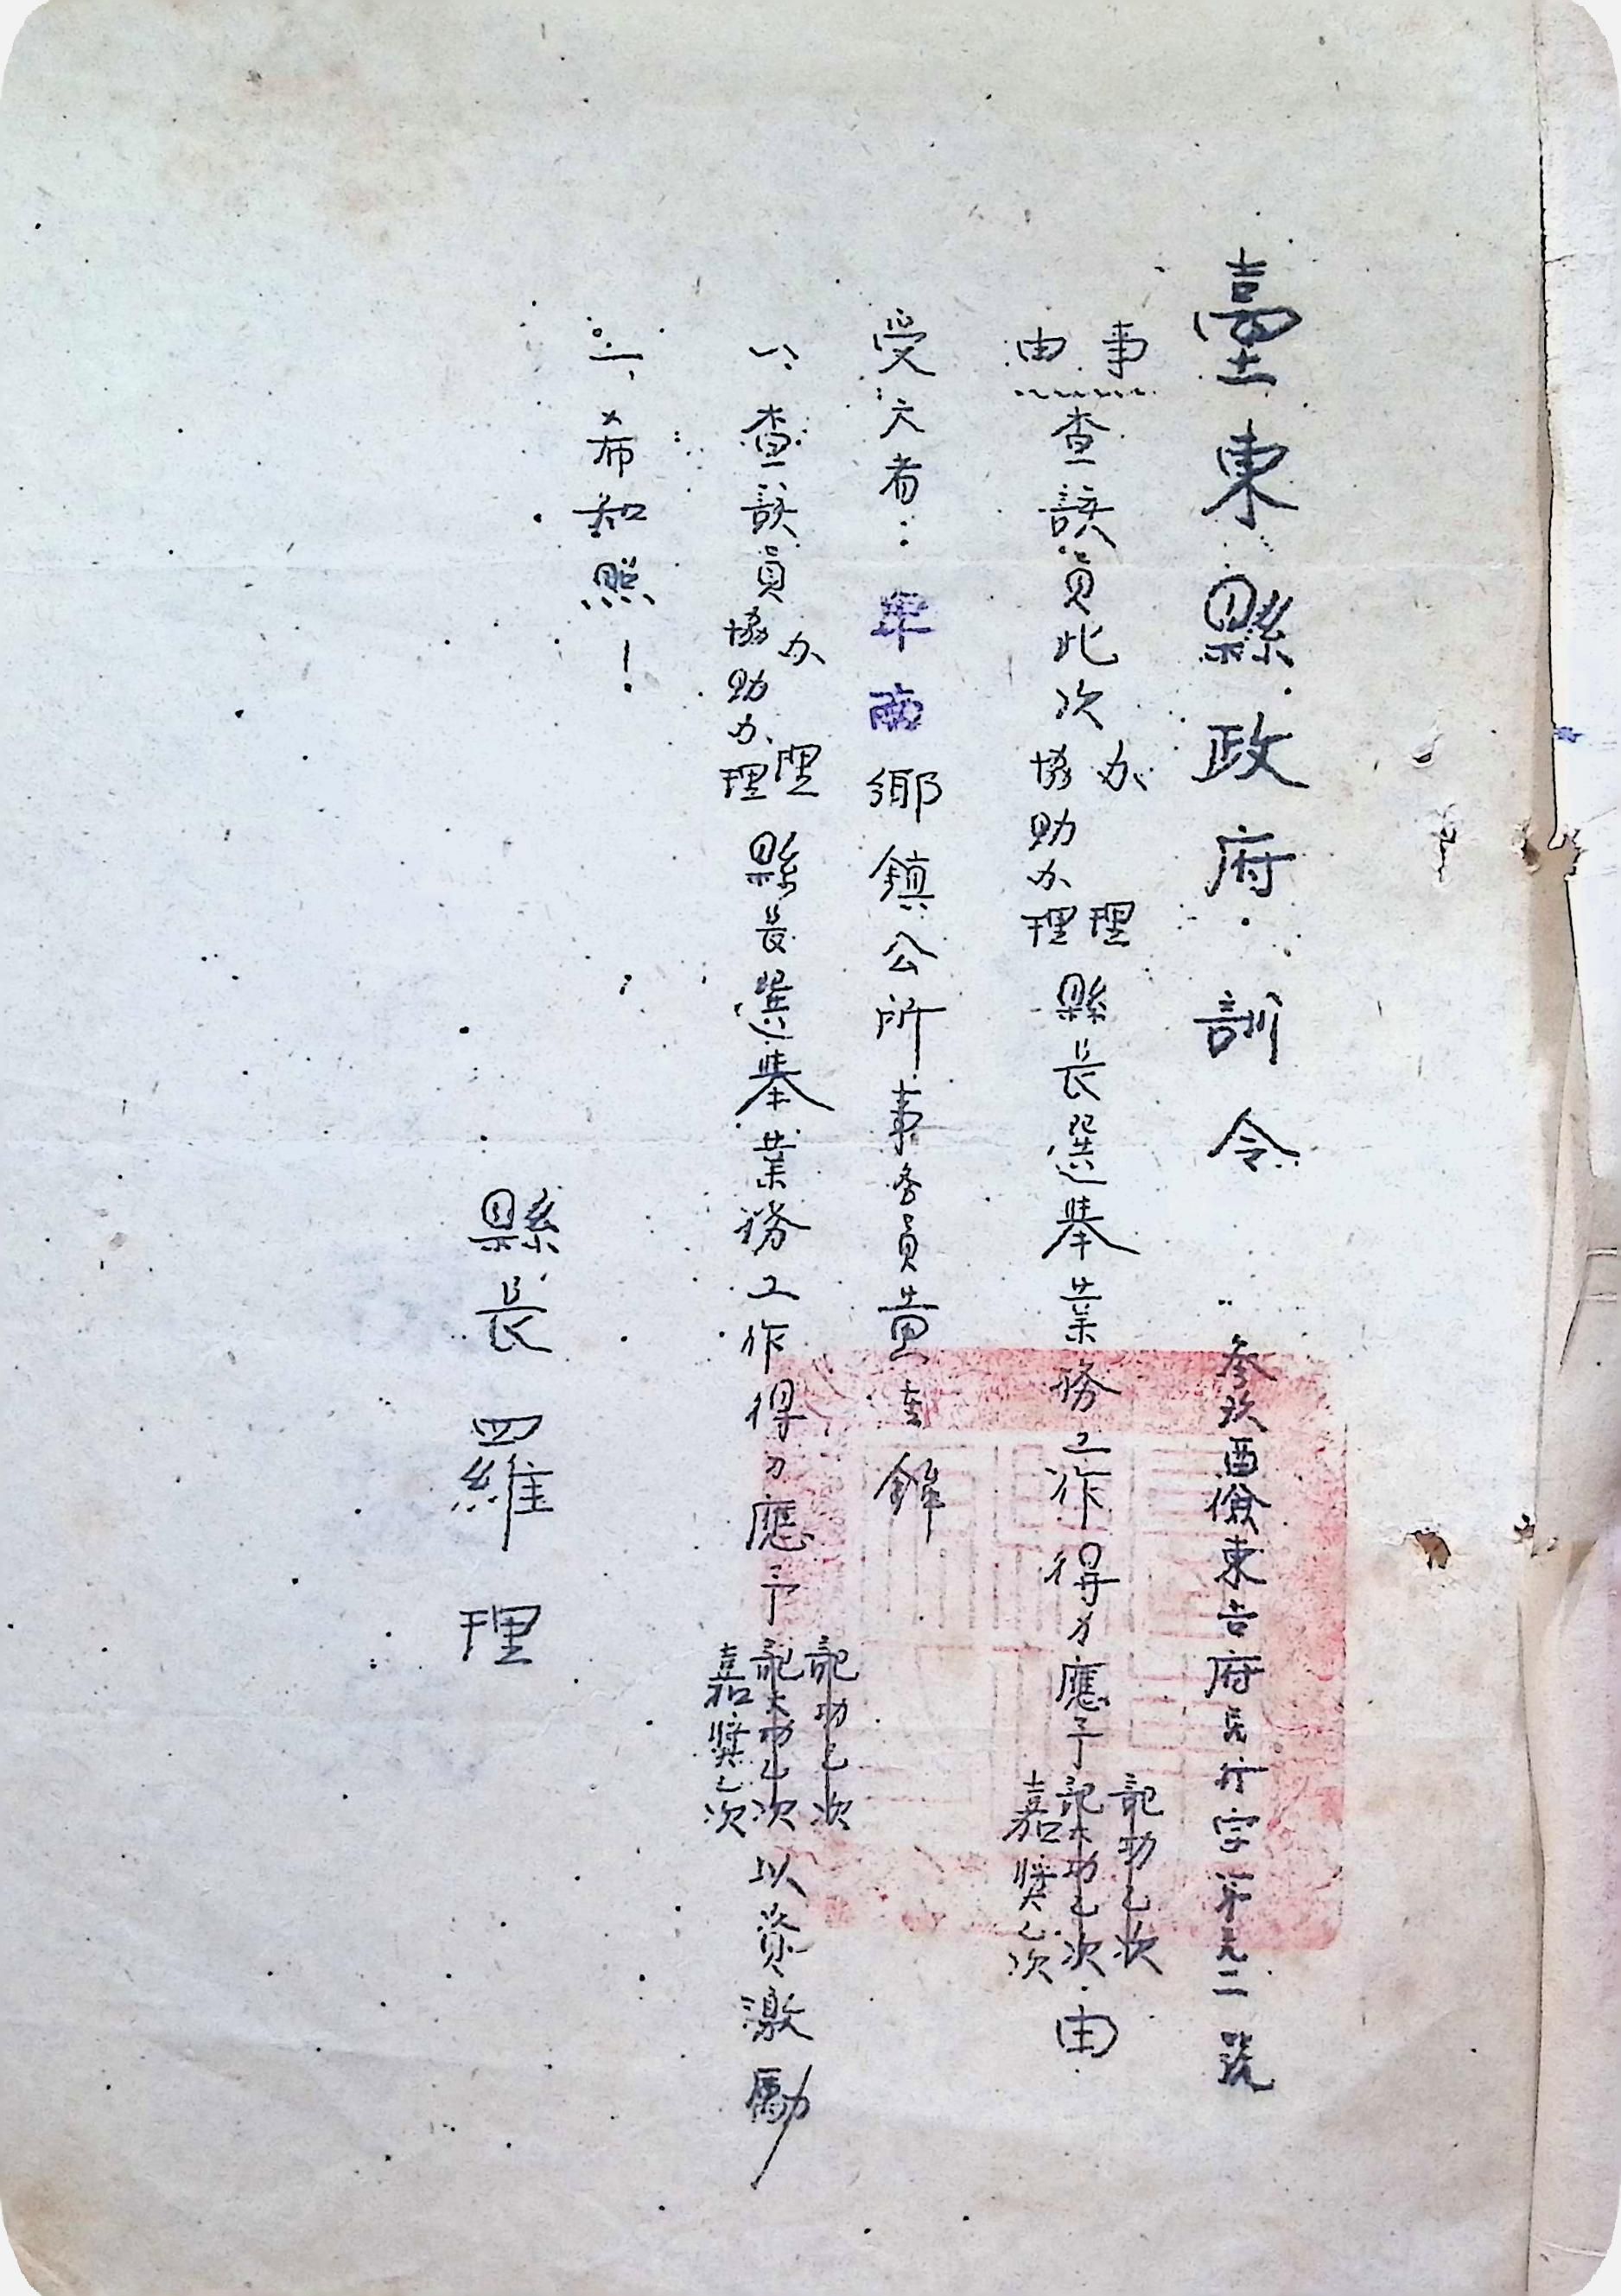 臺東縣政府訓令 叁玖酉儉東吉府民行字第元二號
事由 查該員此次 办理 協助办理 縣長選舉業務工作得力應予 記功乙次 記大功乙次 嘉獎乙次 由
受文者：卑南鄉鎮公所事務員黃
一、查該員 办理 協助办理 縣長選舉業務工作得力應予 記功乙次 記大功乙次 嘉獎乙次 以資激勵
二、希知照！
縣長 羅 理